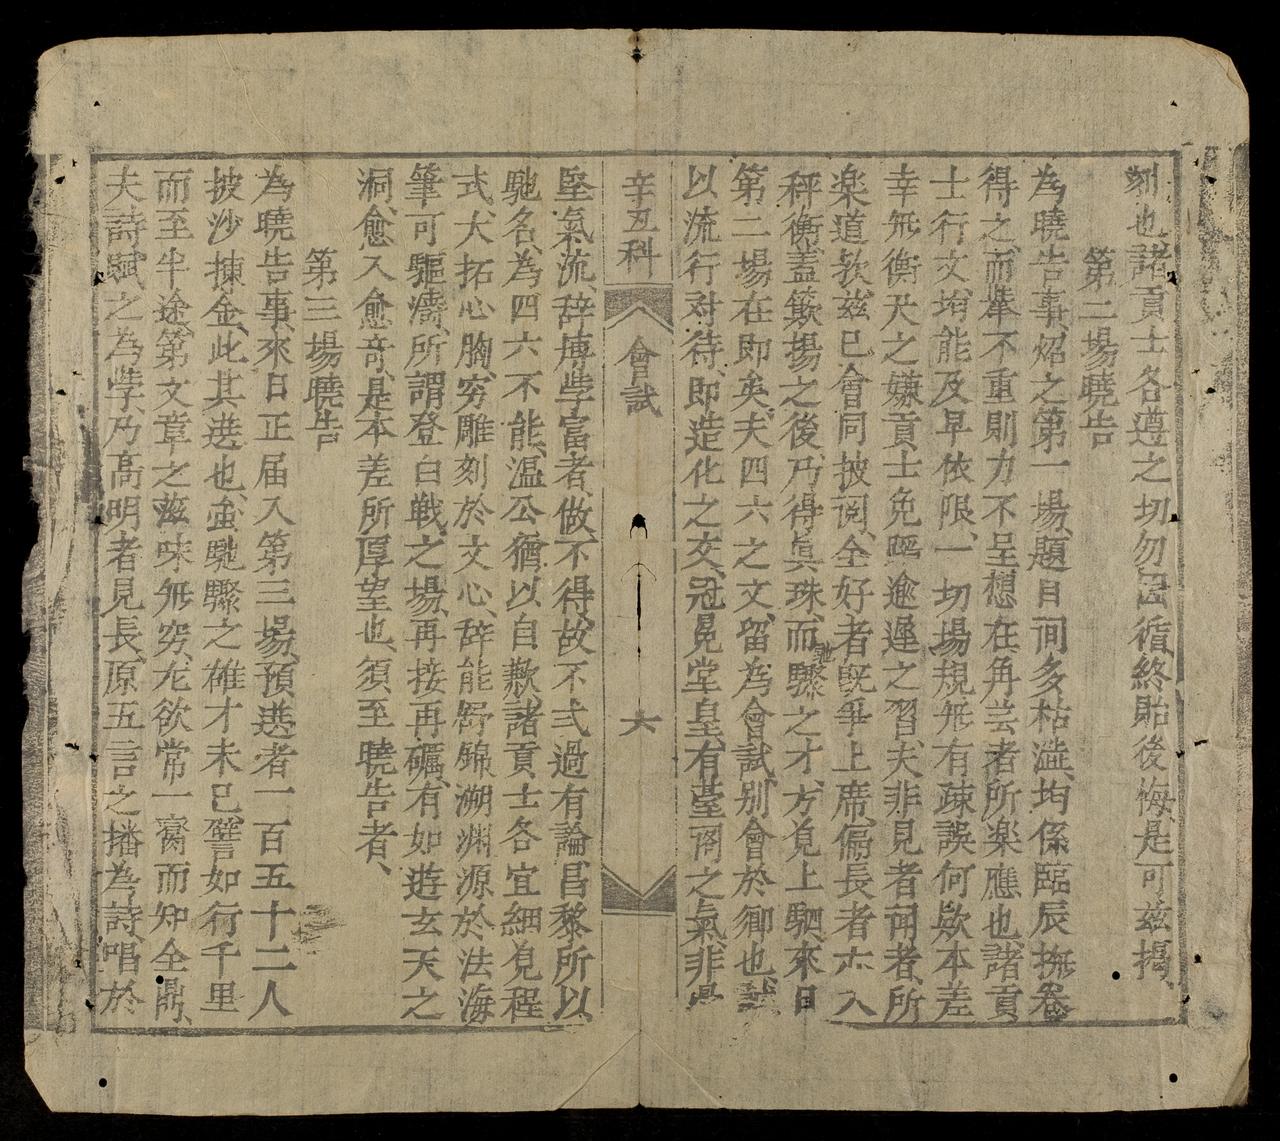 刻也、諸貢士各遵之、切勿因循、終貽後悔、是可兹揭、
第二場曉告
為曉告事、炤之第一場、題目間多枯澁、均係臨辰撫卷
得之、而搴不重則力不呈、想在角芸者所楽應也、諸貢
士行文、均能及早依限、一切場規、無有疎誤、何歟、本差
幸無衡尺之嫌、貢士免蹈逾遲之習、夫非見者、聞者、所
楽道歟、兹已會同披閱、全好者旣爭上席、偏長者亦入
秤衡、盖簸揚之後、乃得眞珠、而馳驟之才、方見上駟、來日
第二場在即矣、夫四六之文、留為會試、别會於鄉也、誠
以流行对待、即造化之文、冠冕堂皇、有䑓阁之氣、非骨
辛丑科 會試 六
堅氣流、辞博學富者、做不得、故不弍過有論、昌黎所以
馳名、為四六不能、温公猶以自歉、諸貢士各宜細見程
式、大拓心胸、穷雕刻於文心、辞能舒錦、溯渊源於法海、
筆可驅濤、所謂登白戰之場、再接再礪、有如遊玄天之
洞、愈入愈奇、是本差所厚望也、須至曉告者、
第三場曉告
為曉告事、來日正届入第三場、預選者一百五十二人
披沙揀金、此其選也、蛮馳驟之雄才未已、譬如行千里
而至半途、第文章之滋味無窮、尤欲常一脔而知全鼎、
夫詩賦之為學、乃高明者見長、原五言之播為詩、唱於